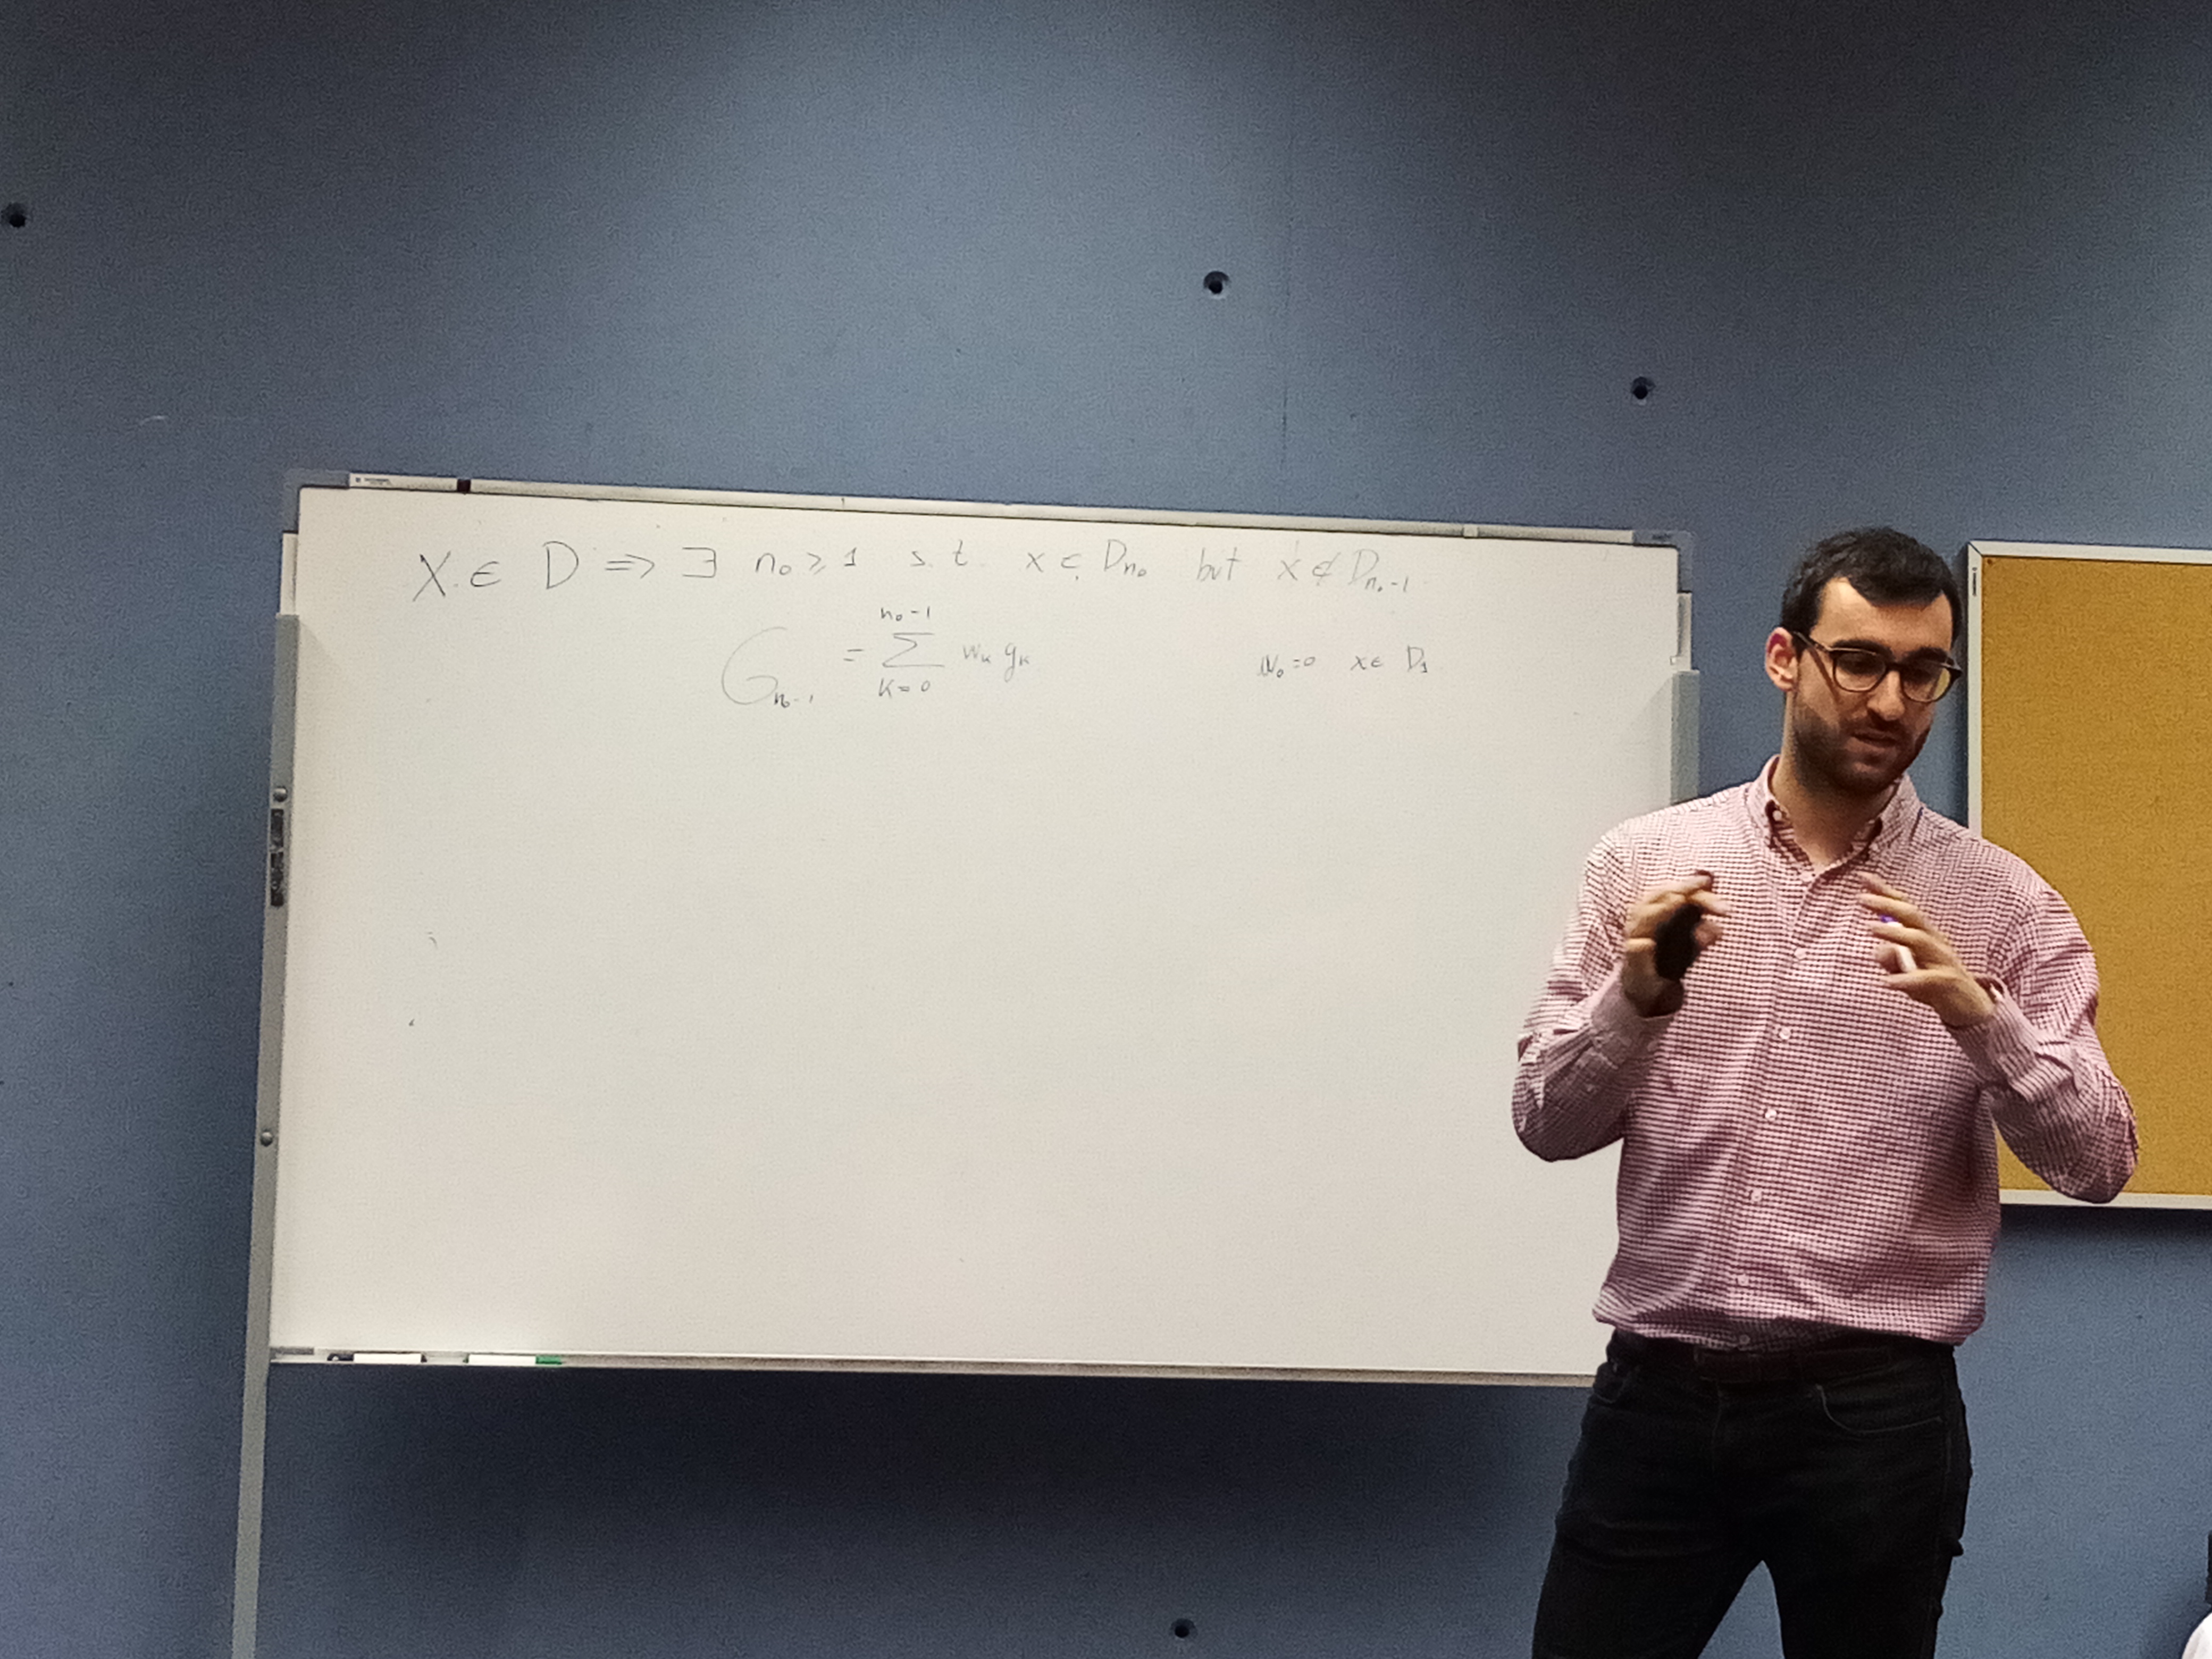 X ∈ D ⇒ ∃ n₀ ≥ 1 s.t. x ∈ Dn₀ but x ∉ Dn₀-1
Gn₀-1 = ∑ₖ₌₀ⁿ⁰⁻¹ wₖ gₖ w₀ = 0 x ∈ D₁